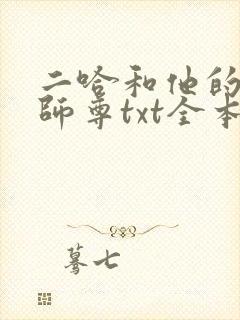 二哈和他的
師尊txt全本
驀七